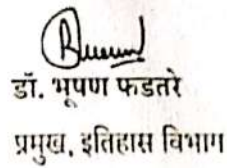 डॉ. भूषण फडतरे
प्रमुख, इतिहास विभाग